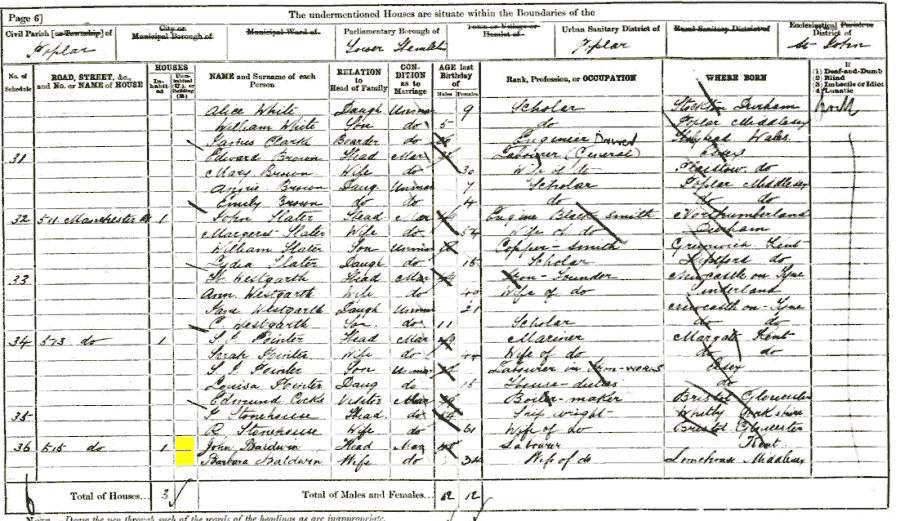 Page 6] The undermentioned Houses are situate within the Boundaries of the
Civil Parish [or Township] of Poplar City or Municipal Borough of Municipal Ward of Parliamentary Borough of Tower Hamlets Town or Village or Hamlet of Urban Sanitary District of Poplar Rural Sanitary District of Ecclesiastical Parish or District of St John
No. of Schedule ROAD, STREET, &c., and No. or NAME of HOUSE HOUSES Inhabited Uninhabited (U.), or Building (B.) NAME and Surname of each Person RELATION to Head of Family CONDITION as to Marriage AGE last Birthday of Males Females Rank, Profession, or OCCUPATION WHERE BORN If (1) Deaf-and-Dumb (2) Blind (3) Imbecile or Idiot (4) Lunatic
Alice White Daugh Unmar 9 Scholar Stockton Durham
William White Son do 5 do Poplar Middlesex
James Clark Boarder do Engineer Wales
31 Edward Brown Head Mar Labourer (General) Essex
Mary Brown Wife do 30 Wife of do Plaistow do
Annie Brown Daug Unmar 7 Scholar Poplar Middlesex
Emily Brown do do 4 do do do
32 511 Manchester Rd 1 John Slater Head Mar Engine Black smith Northumberland
Margaret Slater Wife do 54 Wife of do Durham
William Slater Son Unmar Copper-smith Greenwich Kent
Lydia Slater Daugh do 15 Scholar do
33 W Westgarth Head Mar Iron-Founder Newcastle on Tyne
Ann Westgarth Wife do 49 Wife of do Sunderland
Jane Westgarth Daugh Unmar 21 Newcastle on-Tyne
C Westgarth Son do 11 Scholar do do
34 513 do 1 Head Mar Mariner Margate Kent
Sarah Wife do 44 Wife of do do do
Son Unmar Labourer in Iron-works Essex
Louisa Daug do 15 House-duties do
Edmund Visitor Mar Boiler-maker Bristol Gloucester
35 Stonehouse Head do Ship wright Whitby Yorkshire
R Stonehouse Wife do 61 Wife of do Bristol Gloucester
36 515 do 1 John Baldwin Head Mar Labourer Kent
Barbara Baldwin Wife do 34 Wife of do Limehouse Middlesex
6 Total of Houses... 3 Total of Males and Females... 12 12
NOTE.—Draw the pen through such of the words of the headings as are inappropriate.